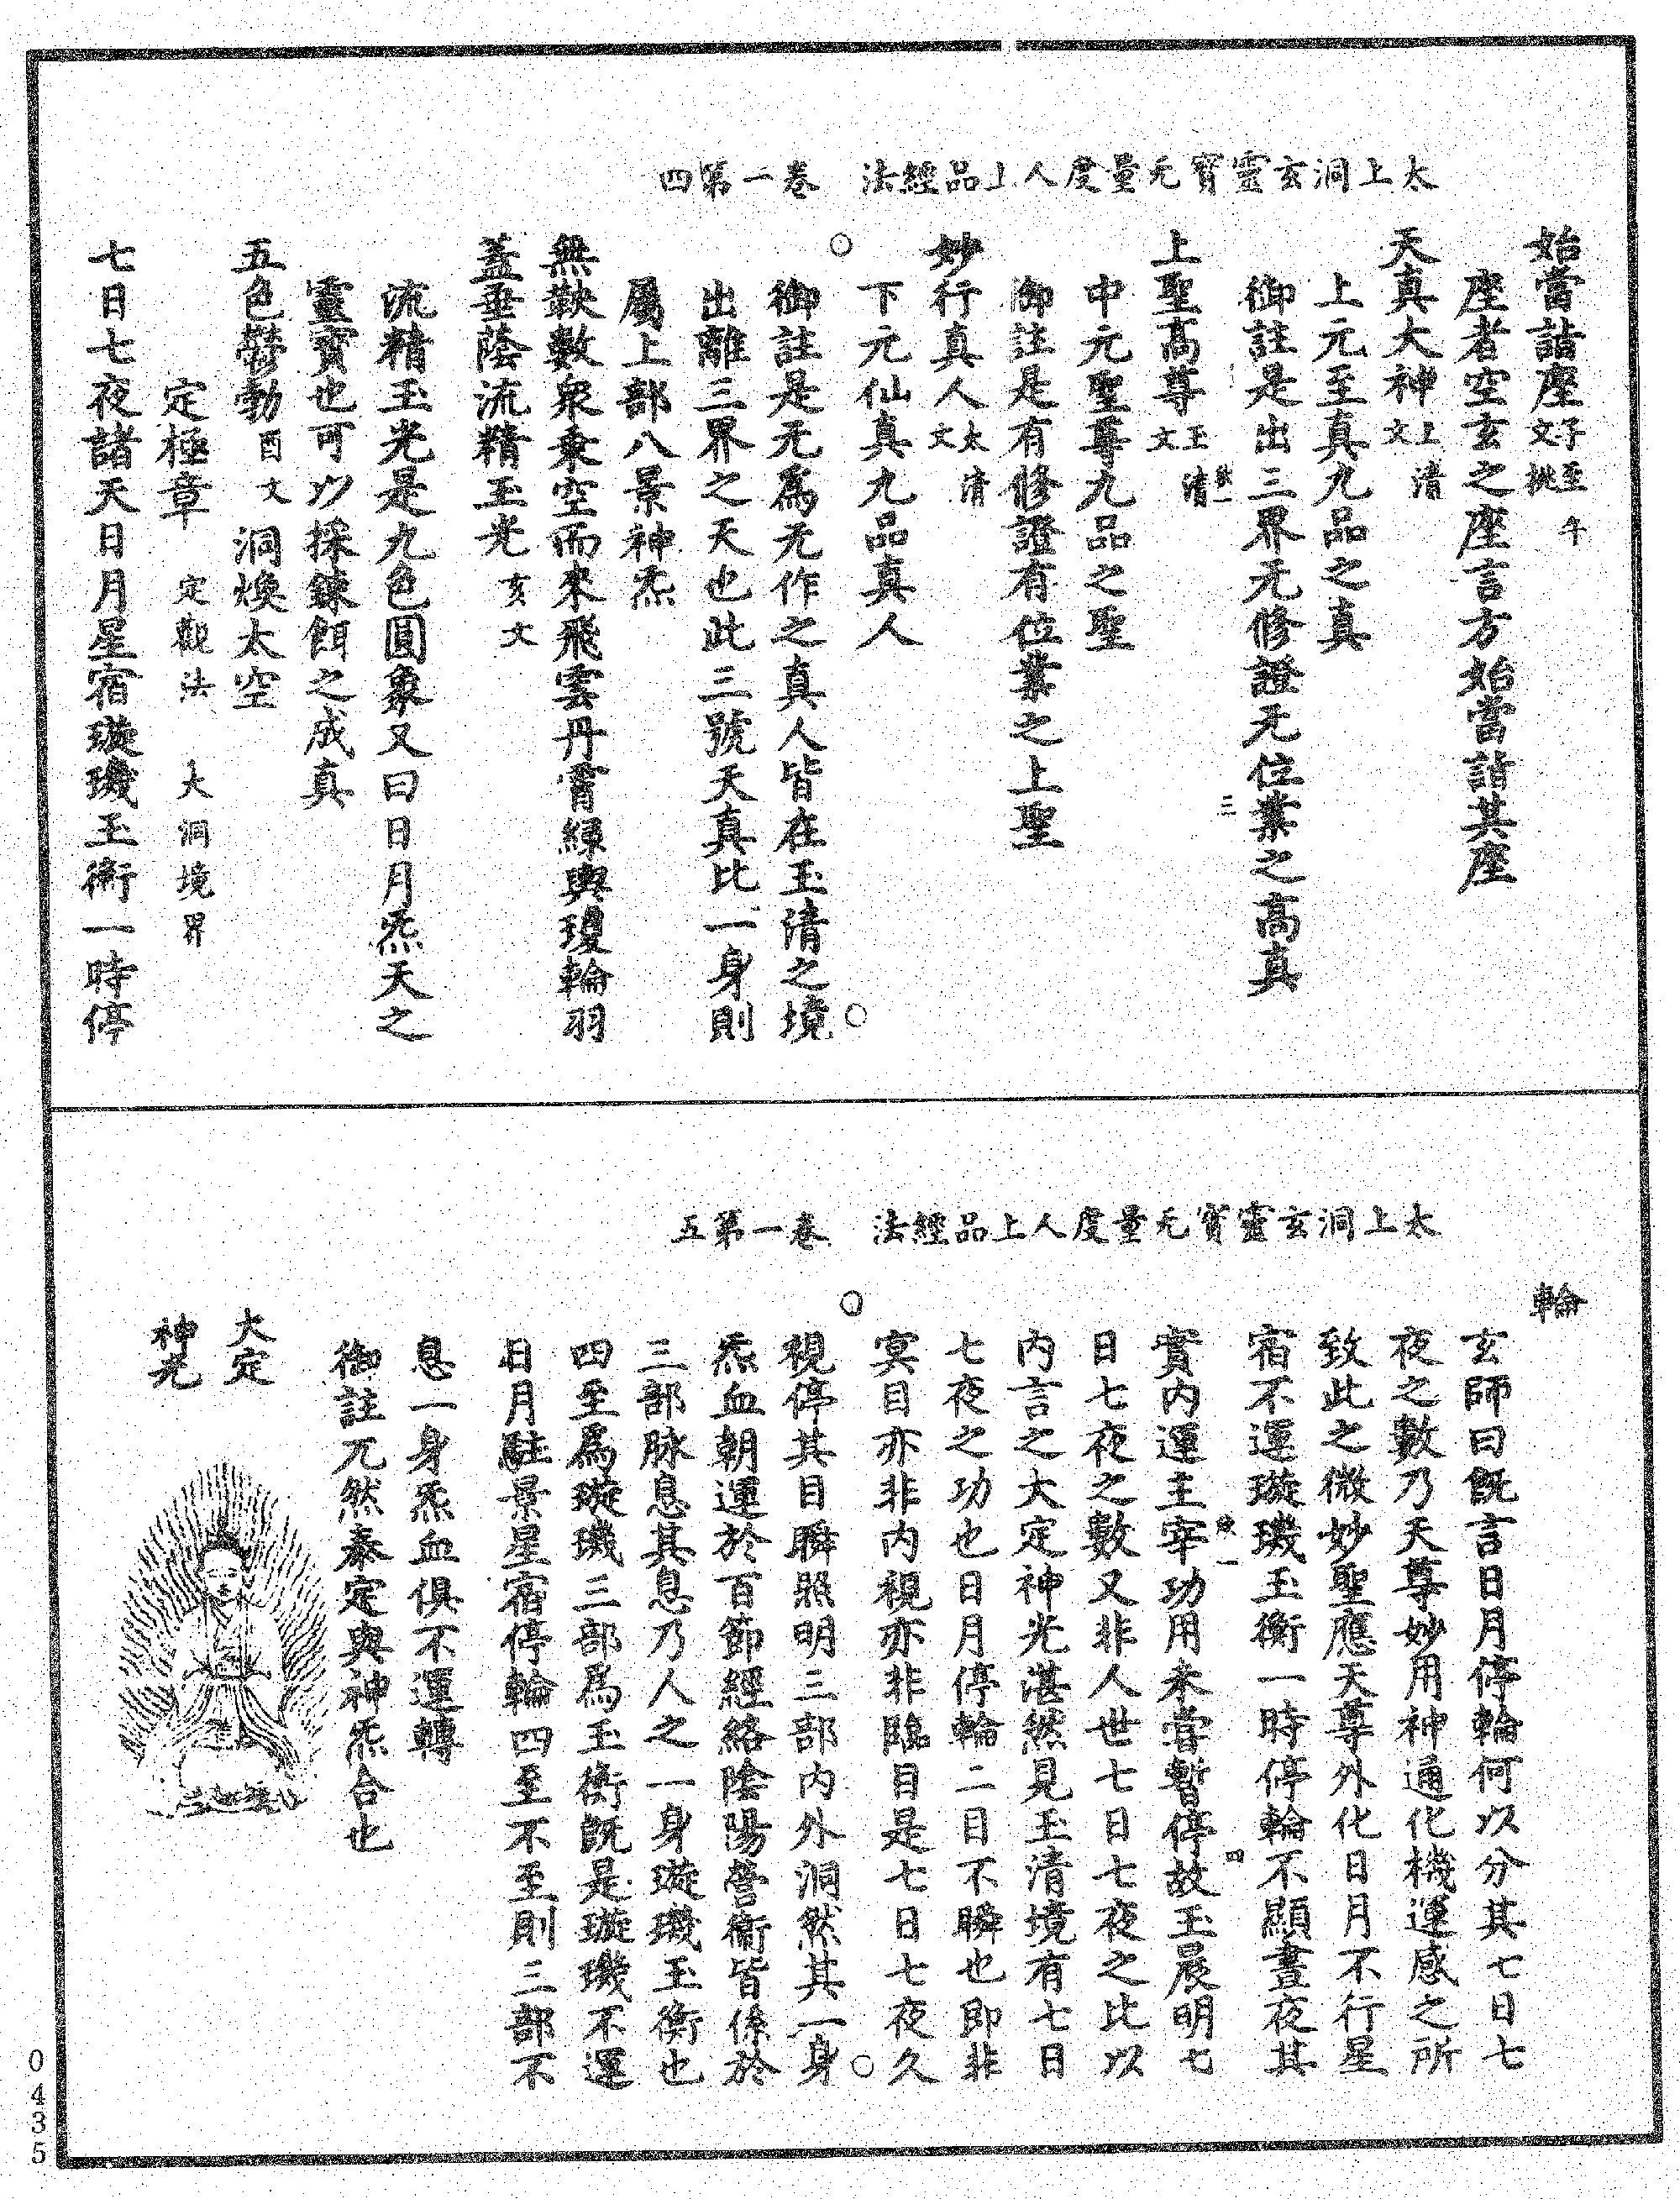 太上洞玄靈寶无量度人上品經法　卷一第四
始當詣座子至午文挑
座者空玄之座言方始當詣其座
天真大神上清文
上元至真九品之真
御註是出三界无修證无位業之高真
上聖高尊玉清文
中元聖尊九品之聖
御註是有修證有位業之上聖
妙行真人太清文
下元仙真九品真人
御註是无為无作之真人皆在玉清之境
出離三界之天也此三號天真比一身則
屬上部八景神炁
無鞅數衆乗空而來飛雲丹霄綠輿瓊輪羽
蓋垂蔭流精玉光亥文
流精玉光是九色圓象又曰日月炁天之
靈寶也可以採鍊餌之成真
五色欝勃酉文洞煥太空
定極章　定觀法　大洞境界
七日七夜諸天日月星宿璇璣玉衡一時停
太上洞玄靈寶无量度人上品經法　卷一第五
輪
玄師曰既言日月停輪何以分其七日七
夜之數乃天尊妙用神通化機運感之所
致此之微妙聖應天尊外化日月不行星
宿不運璇璣玉衡一時停輪不顯晝夜其
實内運主宰功用未嘗暫停故玉晨明七
日七夜之數又非人世七日七夜之比以
内言之大定神光湛然見玉清境有七日
七夜之功也日月停輪二目不瞬也即非
冥目亦非内視亦非臨目是七日七夜久
視停其目瞬照明三部内外洞然其一身
炁血朝運於百節經絡陰陽營衛皆係於
三部脉息其息乃人之一身璇璣玉衡也
四至為璇璣三部為玉衡既是璇璣不運
日月駐景星宿停輪四至不至則三部不
息一身炁血俱不運轉
御註兀然泰定與神炁合也
大定
神光
0435